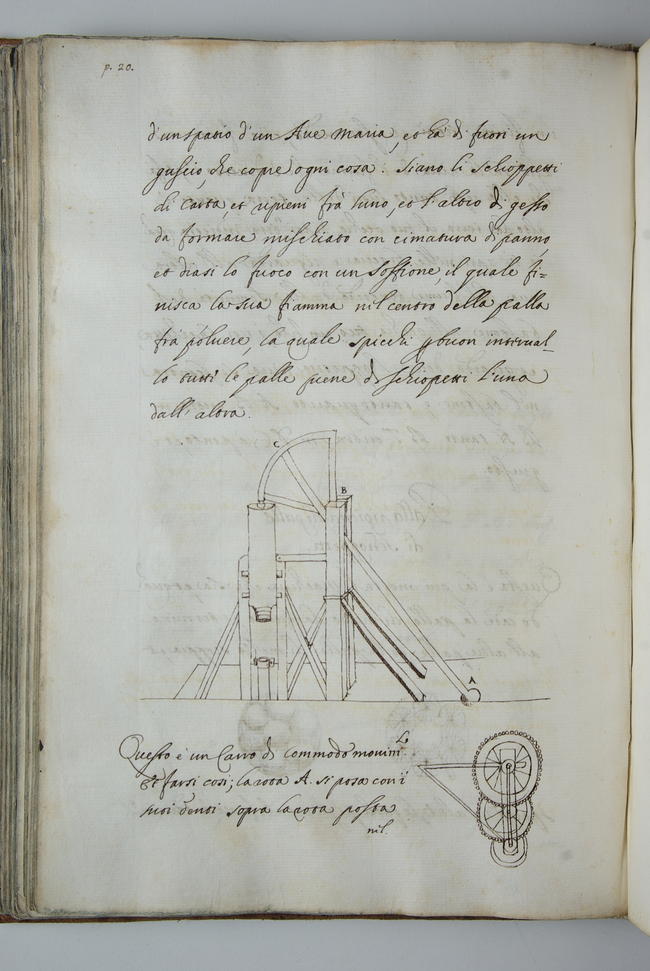 p. 20.
d'un spatio d'un Aue Maria, et hà di fuori un
guscio, che copre ogni cosa. Siano li schioppetti
di carta, et ripieni frà l'uno, et l'altro di gesso
da formare mischiato con cimatura di panno,
et diasi lo fuoco con un soffione, il quale fi=
nisca la sua fiamma nel centro della palla
frà poluere, la quale spicchi p buon interual_
lo tutti le palle piene di schiopetti l'una
dall'altra.
C
B
A
Questo è un Carro di commodo mouim.to
et farsi così; la rota A. si posa con i
suoi denti sopra la rota posta
nel.